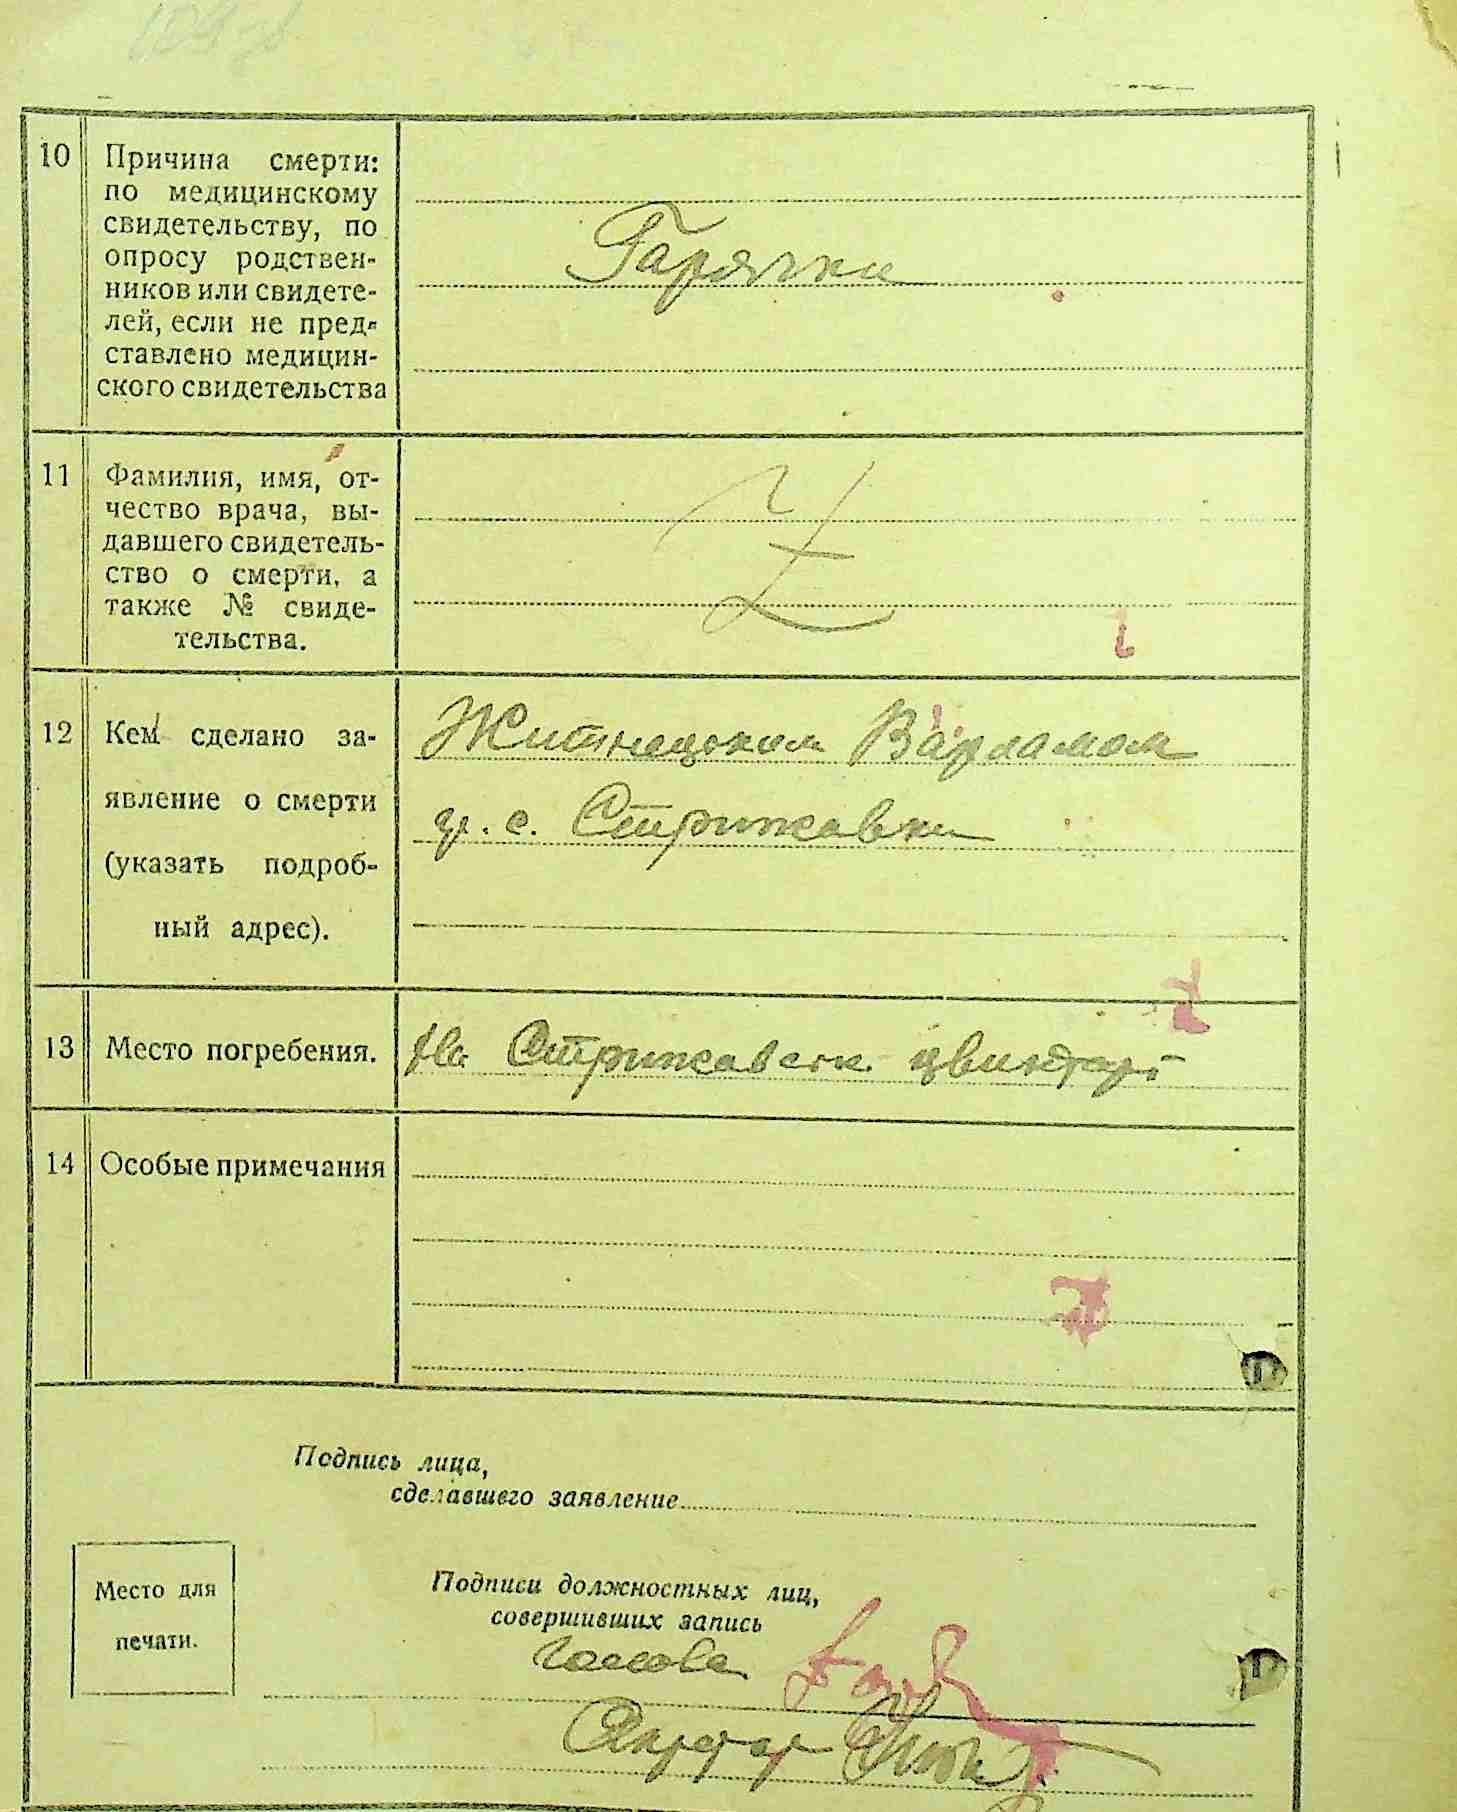 10 Причина смерти:
по медицинскому
свидетельству, по
опросу родствен-
ников или свидете-
лей, если не пред-
ставлено медицин-
ского свидетельства
Гарячка
11 Фамилия, имя, от-
чество врача, вы-
давшего свидетель-
ство о смерти, а
также № свиде-
тельства.
12 Кем сделано за-
явление о смерти
(указать подроб-
ный адрес).
Житнецоким Варламом
гр. с. Стрижавки
13 Место погребения.
На Стрижавськ. цвинтарі
14 Особые примечания
Подпись лица,
сделавшего заявление
Место для
печати.
Подписи должностных лиц,
совершивших запись
Голова
Секретар